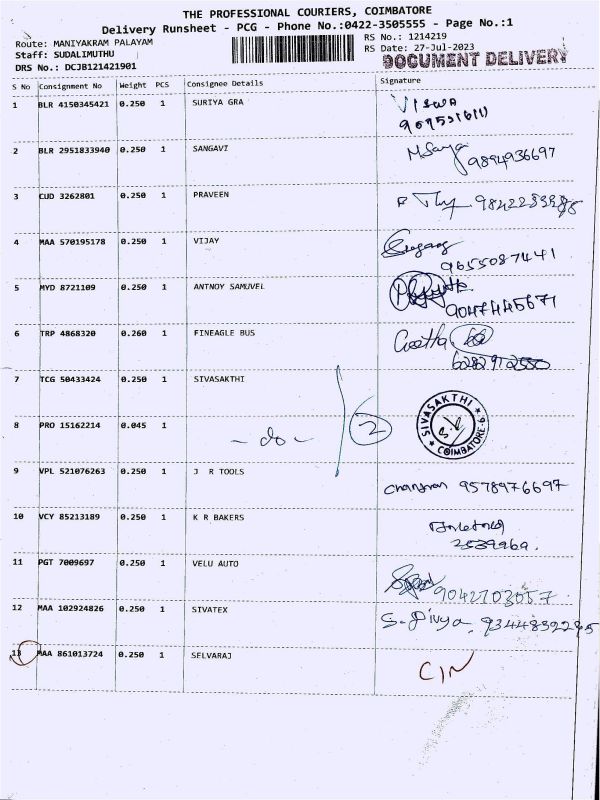 THE PROFESSIONAL COURIERS, COIMBATORE
Delivery Runsheet - PCG - Phone No.:0422-3505555 - Page No.:1
Route: MANIYAKRAM PALAYAM RS No.: 1214219
Staff: SUDALIMUTHU RS Date: 27-Jul-2023
DRS No.: DCJB121421901 DOCUMENT DELIVERY
S No Consignment No Weight PCS Consignee Details Signature
1 BLR 4150345421 0.250 1 SURIYA GRA
2 BLR 2951833940 0.250 1 SANGAVI
9894936697
3 CUD 3262801 0.250 1 PRAVEEN
4 MAA 570195178 0.250 1 VIJAY
9655087441
5 MYD 8721109 0.250 1 ANTNOY SAMUVEL
9047445671
6 TRP 4868320 0.260 1 FINEAGLE BUS
7 TCG 50433424 0.250 1 SIVASAKTHI
SIVASAKTHI
COIMBATORE-6
8 PRO 15162214 0.045 1
- do - 2
9 VPL 521076263 0.250 1 J R TOOLS
9578976697
10 VCY 85213189 0.250 1 K R BAKERS
11 PGT 7009697 0.250 1 VELU AUTO
9042703057
12 MAA 102924826 0.250 1 SIVATEX
S. Divya
13 MAA 861013724 0.250 1 SELVARAJ
CIN